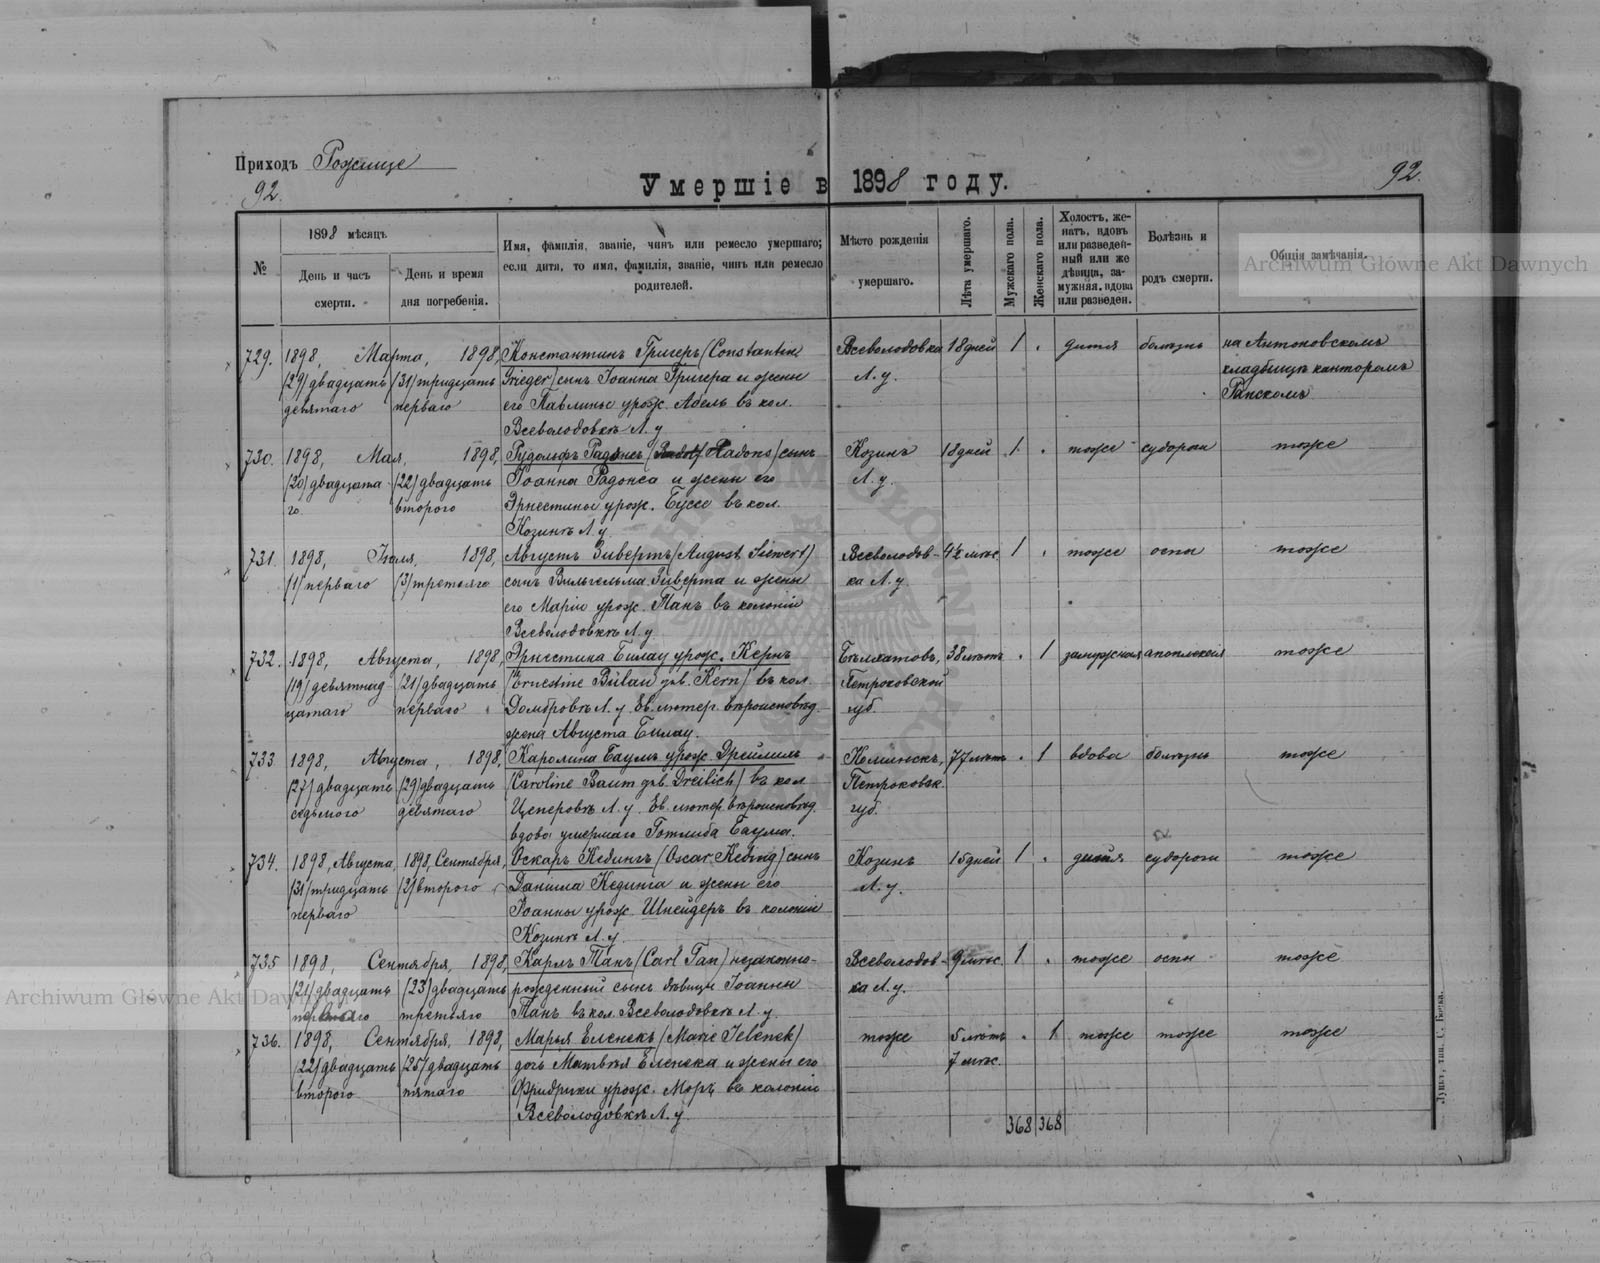 Приходъ Рожище
92.
Умершіе в 1898 году.
92.
№
1898 мѣсяцъ
День и часъ смерти.
День и время дня погребенія.
Имя, фамилія, званіе, чинъ или ремесло умершаго;
если дитя, то имя, фамилія, званіе, чинъ или ремесло
родителей.
Мѣсто рожденія
умершаго.
Лѣта умершаго.
Мужскаго пола.
Женскаго пола.
Холостъ, же-
натъ, вдовъ
или разведен-
ный или же
дѣвица, за-
мужняя, вдова
или разведен.
Болѣзнь и
родъ смерти.
Общія замѣчанія.
Archiwum Główne Akt Dawnych
729. 1898, Марта, 1898, Константинъ Григеръ (Constantin Всеволодовка 18 дней 1 . дитя болѣзнь на Антоновскомъ
(29) двадцать (31) тридцать Grieger) сынъ Іоанна Григера и жены Л. у. кладбищѣ канторомъ
девятаго перваго его Павлины урож. Абель въ кол. Ранскомъ
Всеволодовкѣ Л. у.
730. 1898, Мая, 1898, Рудольфъ Радонсъ (Rudolf Radons) сынъ Козинъ 18 дней 1. . тоже судороги тоже
(20) двадцата (22) двадцать Іоанна Радонса и жены его Л. у.
го. второго Эрнестины урож. Буссе въ кол.
Козинѣ Л. у.
731. 1898, Іюля, 1898, Августъ Зивертъ (August Siewert) Всеволодов- 4½ мѣс. 1 . тоже оспы тоже
(1) перваго (3) третьяго сынъ Вильгельма Зиверта и жены ка Л. у.
его Маріи урож. Танъ въ колоніи
Всеволодовкѣ Л. у.
732. 1898, Августа, 1898, Эрнестина Билау урож. Кернъ Бѣлхатовъ, 38 лѣтъ . 1 замужняя апоплексія тоже
(19) девятнад (21) двадцать (Ernestine Bülau geb. Kern) въ кол. Петроковской
цатаго перваго Домбровкѣ Л. у. Ев. лютер. вѣроисповѣд. губ.
жена Августа Билау.
733 1898, Августа, 1898, Каролина Баумъ урож. Дрейлихъ 77 лѣтъ . 1 вдова болѣзнь тоже
(27) двадцать (29) двадцать (Caroline Baum geb. Dreilich) въ кол. Петроковск.
седьмого девятаго Цеперовкѣ Л. у. Ев. лютер. вѣроисповѣд. губ.
вдова умершаго Готлиба Баума.
734. 1898, Августа, 1898, Сентября, Оскаръ Кедингъ (Oscar Keding) сынъ Козинъ 15 дней 1 . дитя судороги тоже
(31) тридцать (2) второго Даніила Кединга и жены его Л. у.
перваго Іоанны урож. Шнейдеръ въ колоніи
Козинѣ Л. у.
735 1898, Сентября, 1898, Карлъ Танъ (Carl Tan) незаконно- Всеволодов- 9 мѣс. 1 . тоже оспы тоже
(21) двадцать (23) двадцать рожденный сынъ дѣвицы Іоанны ка Л. у.
перваго третьяго Танъ въ кол. Всеволодовкѣ Л. у.
Archiwum Główne Akt Dawnych
736. 1898, Сентября, 1898, Марья Еленекъ (Marie Jelenek) тоже 5 лѣтъ . 1 тоже тоже тоже
(22) двадцать (25) двадцать дочь Матвѣя Еленека и жены его 7 мѣс.
второго пятаго Фридрики урож. Моръ въ колоніи
Всеволодовкѣ Л. у.
368 368